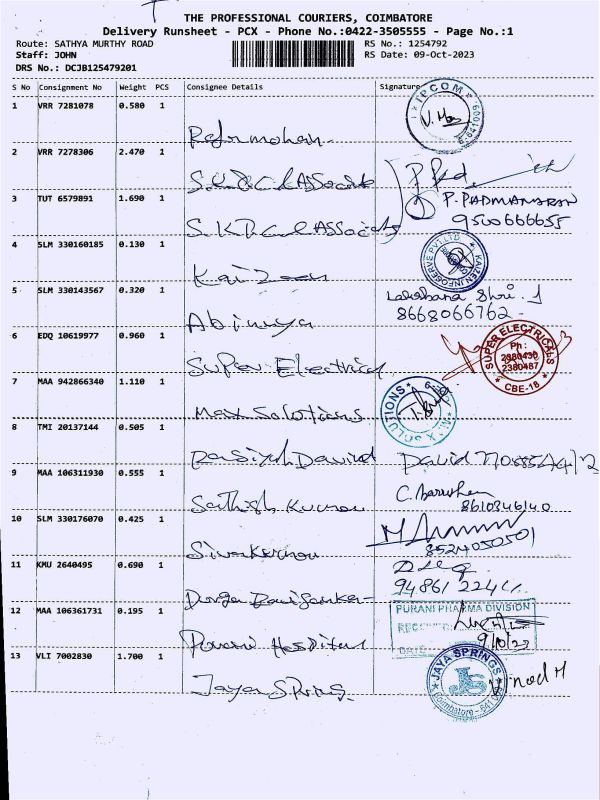 THE PROFESSIONAL COURIERS, COIMBATORE
Delivery Runsheet - PCX - Phone No.:0422-3505555 - Page No.:1
Route: SATHYA MURTHY ROAD RS No.: 1254792
Staff: JOHN RS Date: 09-Oct-2023
DRS No.: DCJB125479201
S No Consignment No Weight PCS Consignee Details Signature
1 VRR 7281078 0.580 1
IPCOM
V. Mos
641009
2 VRR 7278306 2.470 1
Associate
3 TUT 6579891 1.690 1
P. PADMANABAN
9500666655
S.K.D.C.L Associate
4 SLM 330160185 0.130 1
KAIZEN INFOSERVE PVT. LTD.
Kaizeen
5 SLM 330143567 0.320 1
Shri. J
8668066762
Abinaya
6 EDQ 10619977 0.960 1
SUPER ELECTRICALS
Ph :
2380430
2380487
CBE-18
Super Electrical
7 MAA 942866340 1.110 1
SOLUTIONS
Max Solutions
8 TMI 20137144 0.505 1
David
9 MAA 106311930 0.555 1
8610346140
Sathish Kumar
10 SLM 330176070 0.425 1
8524050501
Sivakumar
11 KMU 2640495 0.690 1
Durga
12 MAA 106361731 0.195 1
PURANI PHARMA DIVISION
DATE
9/10/23
Purani Hospital
13 VLI 7002830 1.700 1
JAYA SPRINGS
JS
Coimbatore - 641
Vinod M
Jaya Spring.